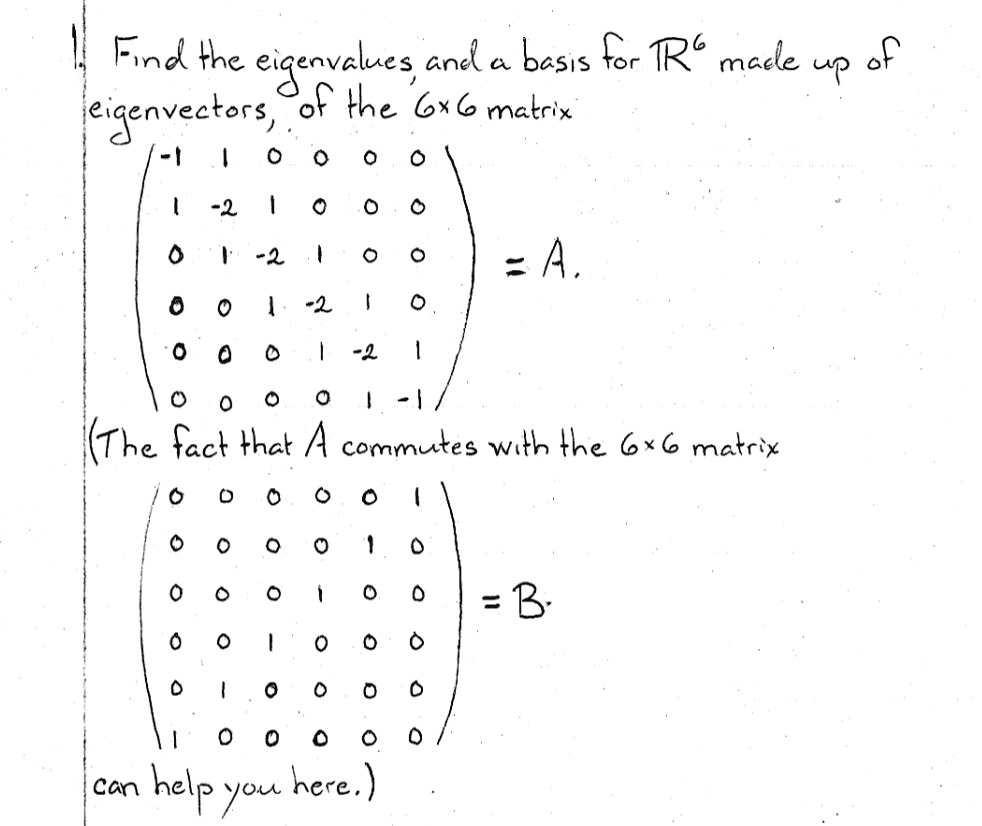 1. Find the eigenvalues, and a basis for ℝ⁶ made up of
eigenvectors, of the 6×6 matrix
( -1 1 0 0 0 0 )
1 -2 1 0 0 0
0 1 -2 1 0 0 = A.
0 0 1 -2 1 0
0 0 0 1 -2 1
0 0 0 0 1 -1
(The fact that A commutes with the 6×6 matrix
0 0 0 0 0 1
0 0 0 0 1 0
0 0 0 1 0 0 = B.
0 0 1 0 0 0
0 1 0 0 0 0
1 0 0 0 0 0
can help you here.)